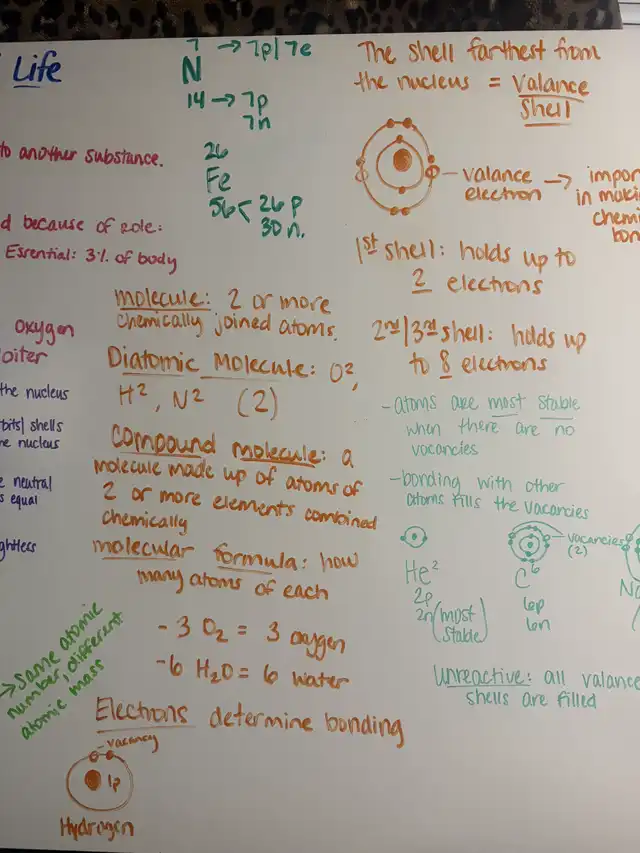 Life
to another substance.
d because of role:
Essential: 3% of body
oxygen
loiter
the nucleus
bits| shells
e nucleus
e neutral
s equal
ghtless
→ same atomic
number, different
atomic mass
7 → 7p/7e
N
14 → 7p
7n
26
Fe
56 < 26 p
30 n.
molecule: 2 or more
chemically joined atoms.
Diatomic Molecule: O²,
H², N² (2)
compound molecule: a
molecule made up of atoms of
2 or more elements combined
chemically
molecular formula: how
many atoms of each
- 3 O₂ = 3 oxygen
- 6 H₂O = 6 water
Electrons determine bonding
- vacancy
1p
Hydrogen
The shell farthest from
the nucleus = Valance
Shell
- valance → impor
electron in makin
chemi
bon
1st shell: holds up to
2 electrons
2nd/3rd shell: holds up
to 8 electrons
- atoms are most stable
when there are no
vacancies
- bonding with other
atoms fills the vacancies
vacancies
(2)
He²
2p
2n (most
stable)
C⁶
6p
6n
N
Unreactive: all valance
shells are filled